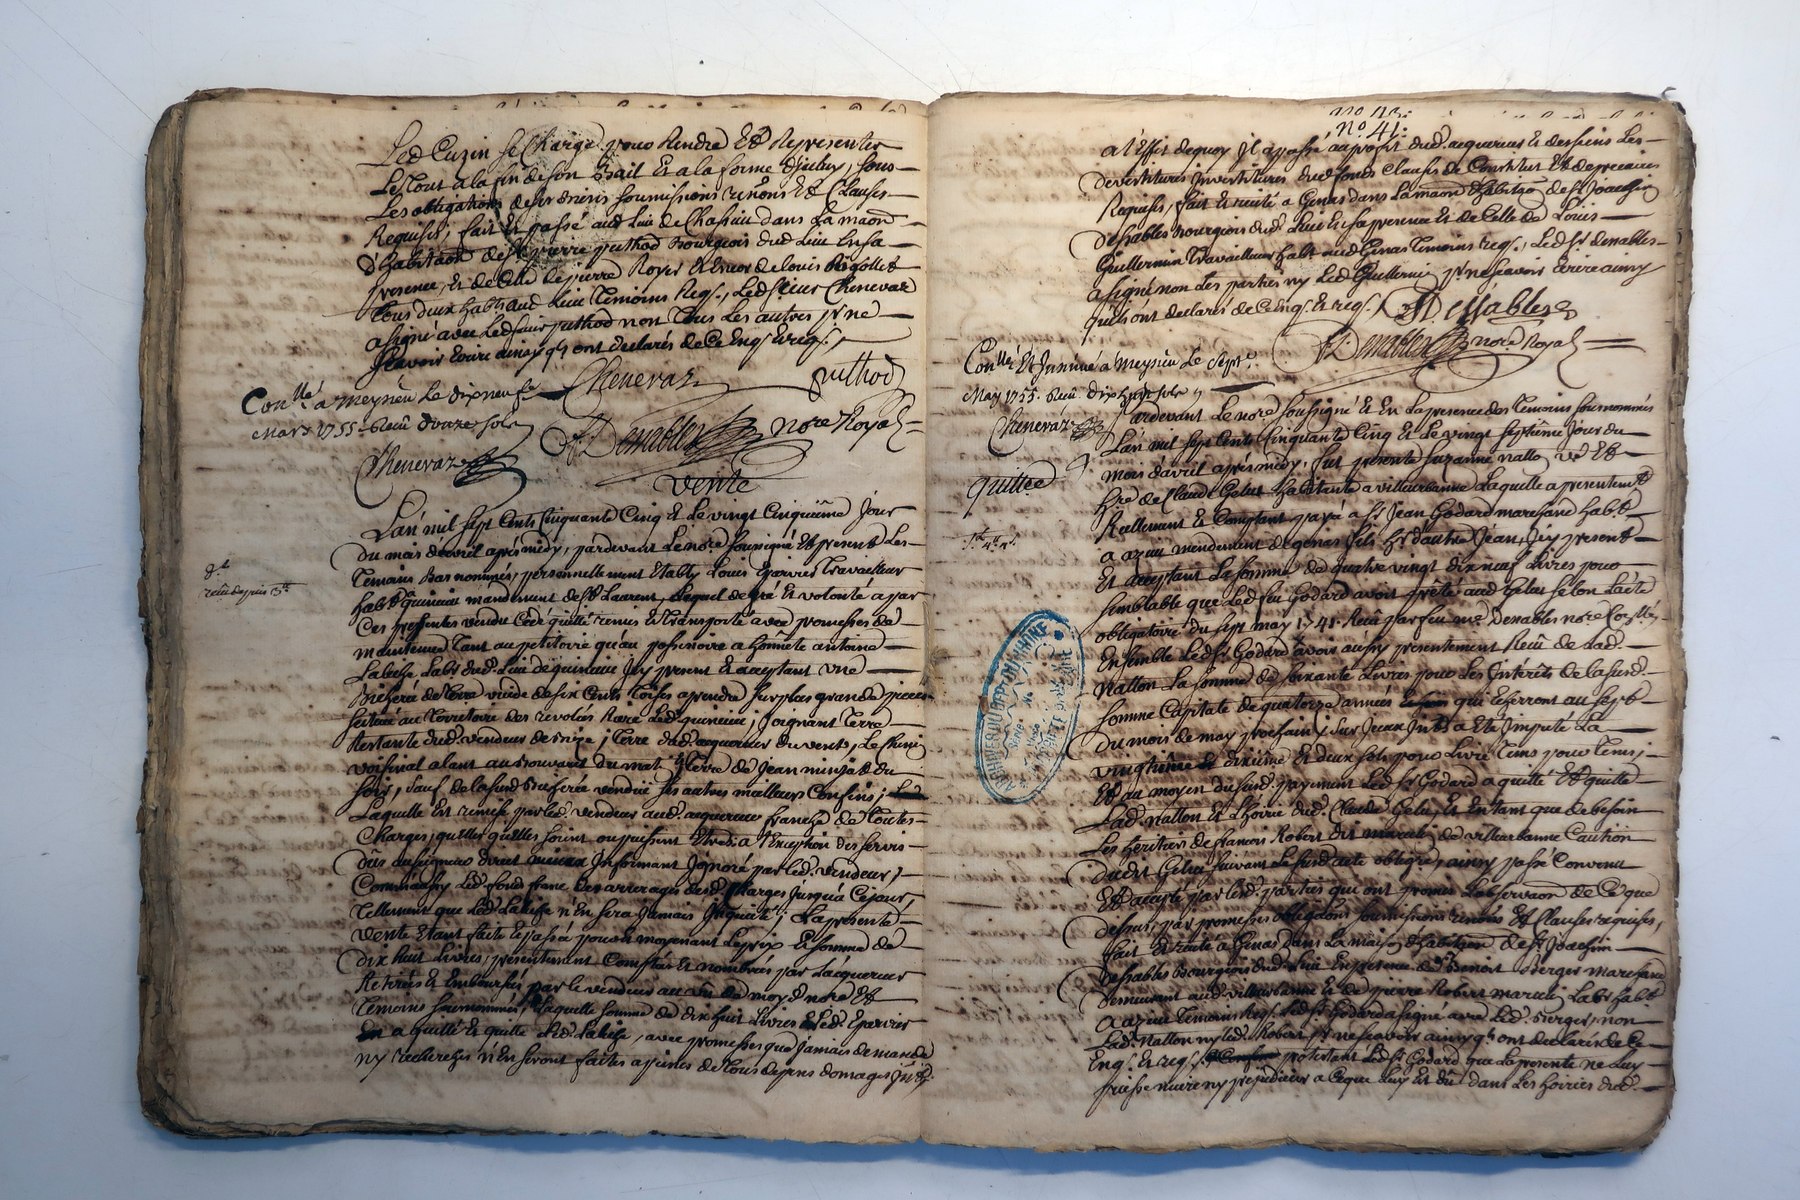 Led Cuzin se Charge pour Rendre Et Representer
Le Tout a la fin de son Bail Et a la forme d'jceluy, sous
Les obligations de soumissions renons Et Clauses
Requises, fait Et passé aud Lieu de Chassieu dans La maon
d'habitaon de Sr pierre puthod Bourgeois dud Lieu En sa
presence, Et de Celle de pierre Royer Et de Louis Rigollet
Tous deux habts aud Lieu Temoins Reqs, Led Sieur Chenevaz
a signé avec Led Sieur puthod non Tous Les autres pr ne
sçavoir Ecrire ainsy qls ont declarés de Ce Enqs Et reqs,
Chenevaz puthod
Conllé a Meysieu Le dix neuf
Mars 1755. Receu douze sols
Chenevaz
Denables nore Royal
Vente
L'an mil sept Cents Cinquante Cinq Et Le vingt Cinquieme Jour
du mois d'avril apres midy, pardevant Le nore soussigné Et present Les
Temoins Bas nommés, personnellement Etably Louis Eparvier Travailleur
habt a quincieu mandement de St Laurent, Lequel de gré Et volonté a par
Ces presentes vendu Cédé quitté remis Et Transporté avec promesses de
maintenir Tant au petitoire qu'au possessoire a honnête antoine
Labeise Labr dud Lieu de quincieu Jcy present Et acceptant une
Bicherée de Terre vuide de six Cents Toises a prendre sur plus grande piece
scituée au Territoire des revolés Rière Led quincieu; Joignant Terre
Restante dud vendeur de bize; Terre dud acquereur du vent, Le chemin
voisinal alant au mouvant du mat, Terre de Jean minjat du
soir, sauf de la susd Bicherée vendue ses autres meilleurs Confins;
Laquelle Est remise par led vendeur aud acquereur franche de Toutes
Charges, quelles qu'elles soient ou puissent Etre, a l'Exception des servis
dûs au seigneur direct Informant Jgnoré par led vendeur;
Comme aussy Led fonds franc des arrerages desd Charges Jusqu'a Cejour,
Tellement que Led Labeise n'En sera Jamais Jnquieté; La presente
vente Etant faite Et passée pour Et moyenant Le prix Et somme de
dix huit Livres, presentement Comptés Et nombrés par L'acquereur
Retirés Et Emboursés par le vendeur au vû de moyd nore Et
Temoins sousnommés, de Laquelle somme de dix huit Livres Led Eparvier
a quitté Et quitte Led Labeise, avec promesses que Jamais demande
ny recherche n'En seront faites a peines de Tous depens domages Jnts
No 41.
a l'Effet dequoy Jl a passé au profit dud acquereur Et des siens Les
devestitures Jnvestitures dud fonds Clauses de Constitut Et de precaire
Requises, fait Et recité a Genas dans La maon d'habitaon de Sr Joachin
desables Bourgeois dud Lieu En sa presence Et de Celle de Louis
Guillermin Travailleur habt aud Genas Temoins reqs, Led Sr desables
a signé non Les parties ny Led Guillermin pr ne sçavoir Ecrire ainsy
qu'ils ont declarés de Ce Enqs Et reqs. Desables
Denables nore Royal
Conllé Et Jnsinué a Meysieu Le Sept
May 1755. Receu dix huit sols
Chenevaz
Pardevant Le nore soussigné Et En La presence des Temoins sousnommés
L'an mil sept Cents Cinquante Cinq Et Le vingt septieme Jour du
mois d'avril apres midy, fut presente Suzanne Nallon vve Et
quittce
hre de Claude Gelus habitante a villeurbanne Laquelle a presentemt
Reellement Et Comptant payé a Sr Jean Godard marchand habt
a azieu mandement de genas fils Hr d'autre Jean, Jcy present
Et acceptant La somme de quatre vingt dix neuf Livres pour
semblable que Led feu Godard avoit prêté aud Gelus selon L'acte
obligatoire du sept may 1741. Receu par feu me Denables nore Royal,
Ensemble Led Sr Godard avoir aussy presentement Receu de lad
Nallon La somme de soixante Livres pour Les Jnterêts de la susd
somme Capitale de quatorze années qui Echerront au sept
du mois de may prochain, sur Jceux Jnts a Eté Jmputé La
vingtième dixieme Et deux sols pour Livre Tems pour Tems;
Et au moyen du susd payement Led Sr Godard a quitté Et quitte
Lad Nallon Et L'hoirie dud Claude Gelus Et En tant que de besoin
Les heritiers de francois Robert dit de villeurbanne Caution
dudit Gelus suivant Le susd acte obligre, ainsy passé Convenu
Et accepté par Lesd parties qui ont promis L'observaon de Ce que
dessus, par promesses obligaons soumissions renons Et Clauses requises,
fait Et recité a Genas dans La maison d'habitaon de Sr Joachim
desables Bourgeois dud Lieu En presence de Sr Benoit Berger Marchand
demeurant aud villeurbanne Et de pierre Robert Labr habt
a azieu Temoins Reqs, Led Sr Godard a signé avec Led Berger, non
Lad Nallon ny led Robert pr ne sçavoir ainsy qls ont declarés de Ce
Enqs Et reqs, protestant Led Sr Godard que La presente ne Luy
puisse nuire ny prejudicier a Ceque Luy Est dû dans Les hoiries dud